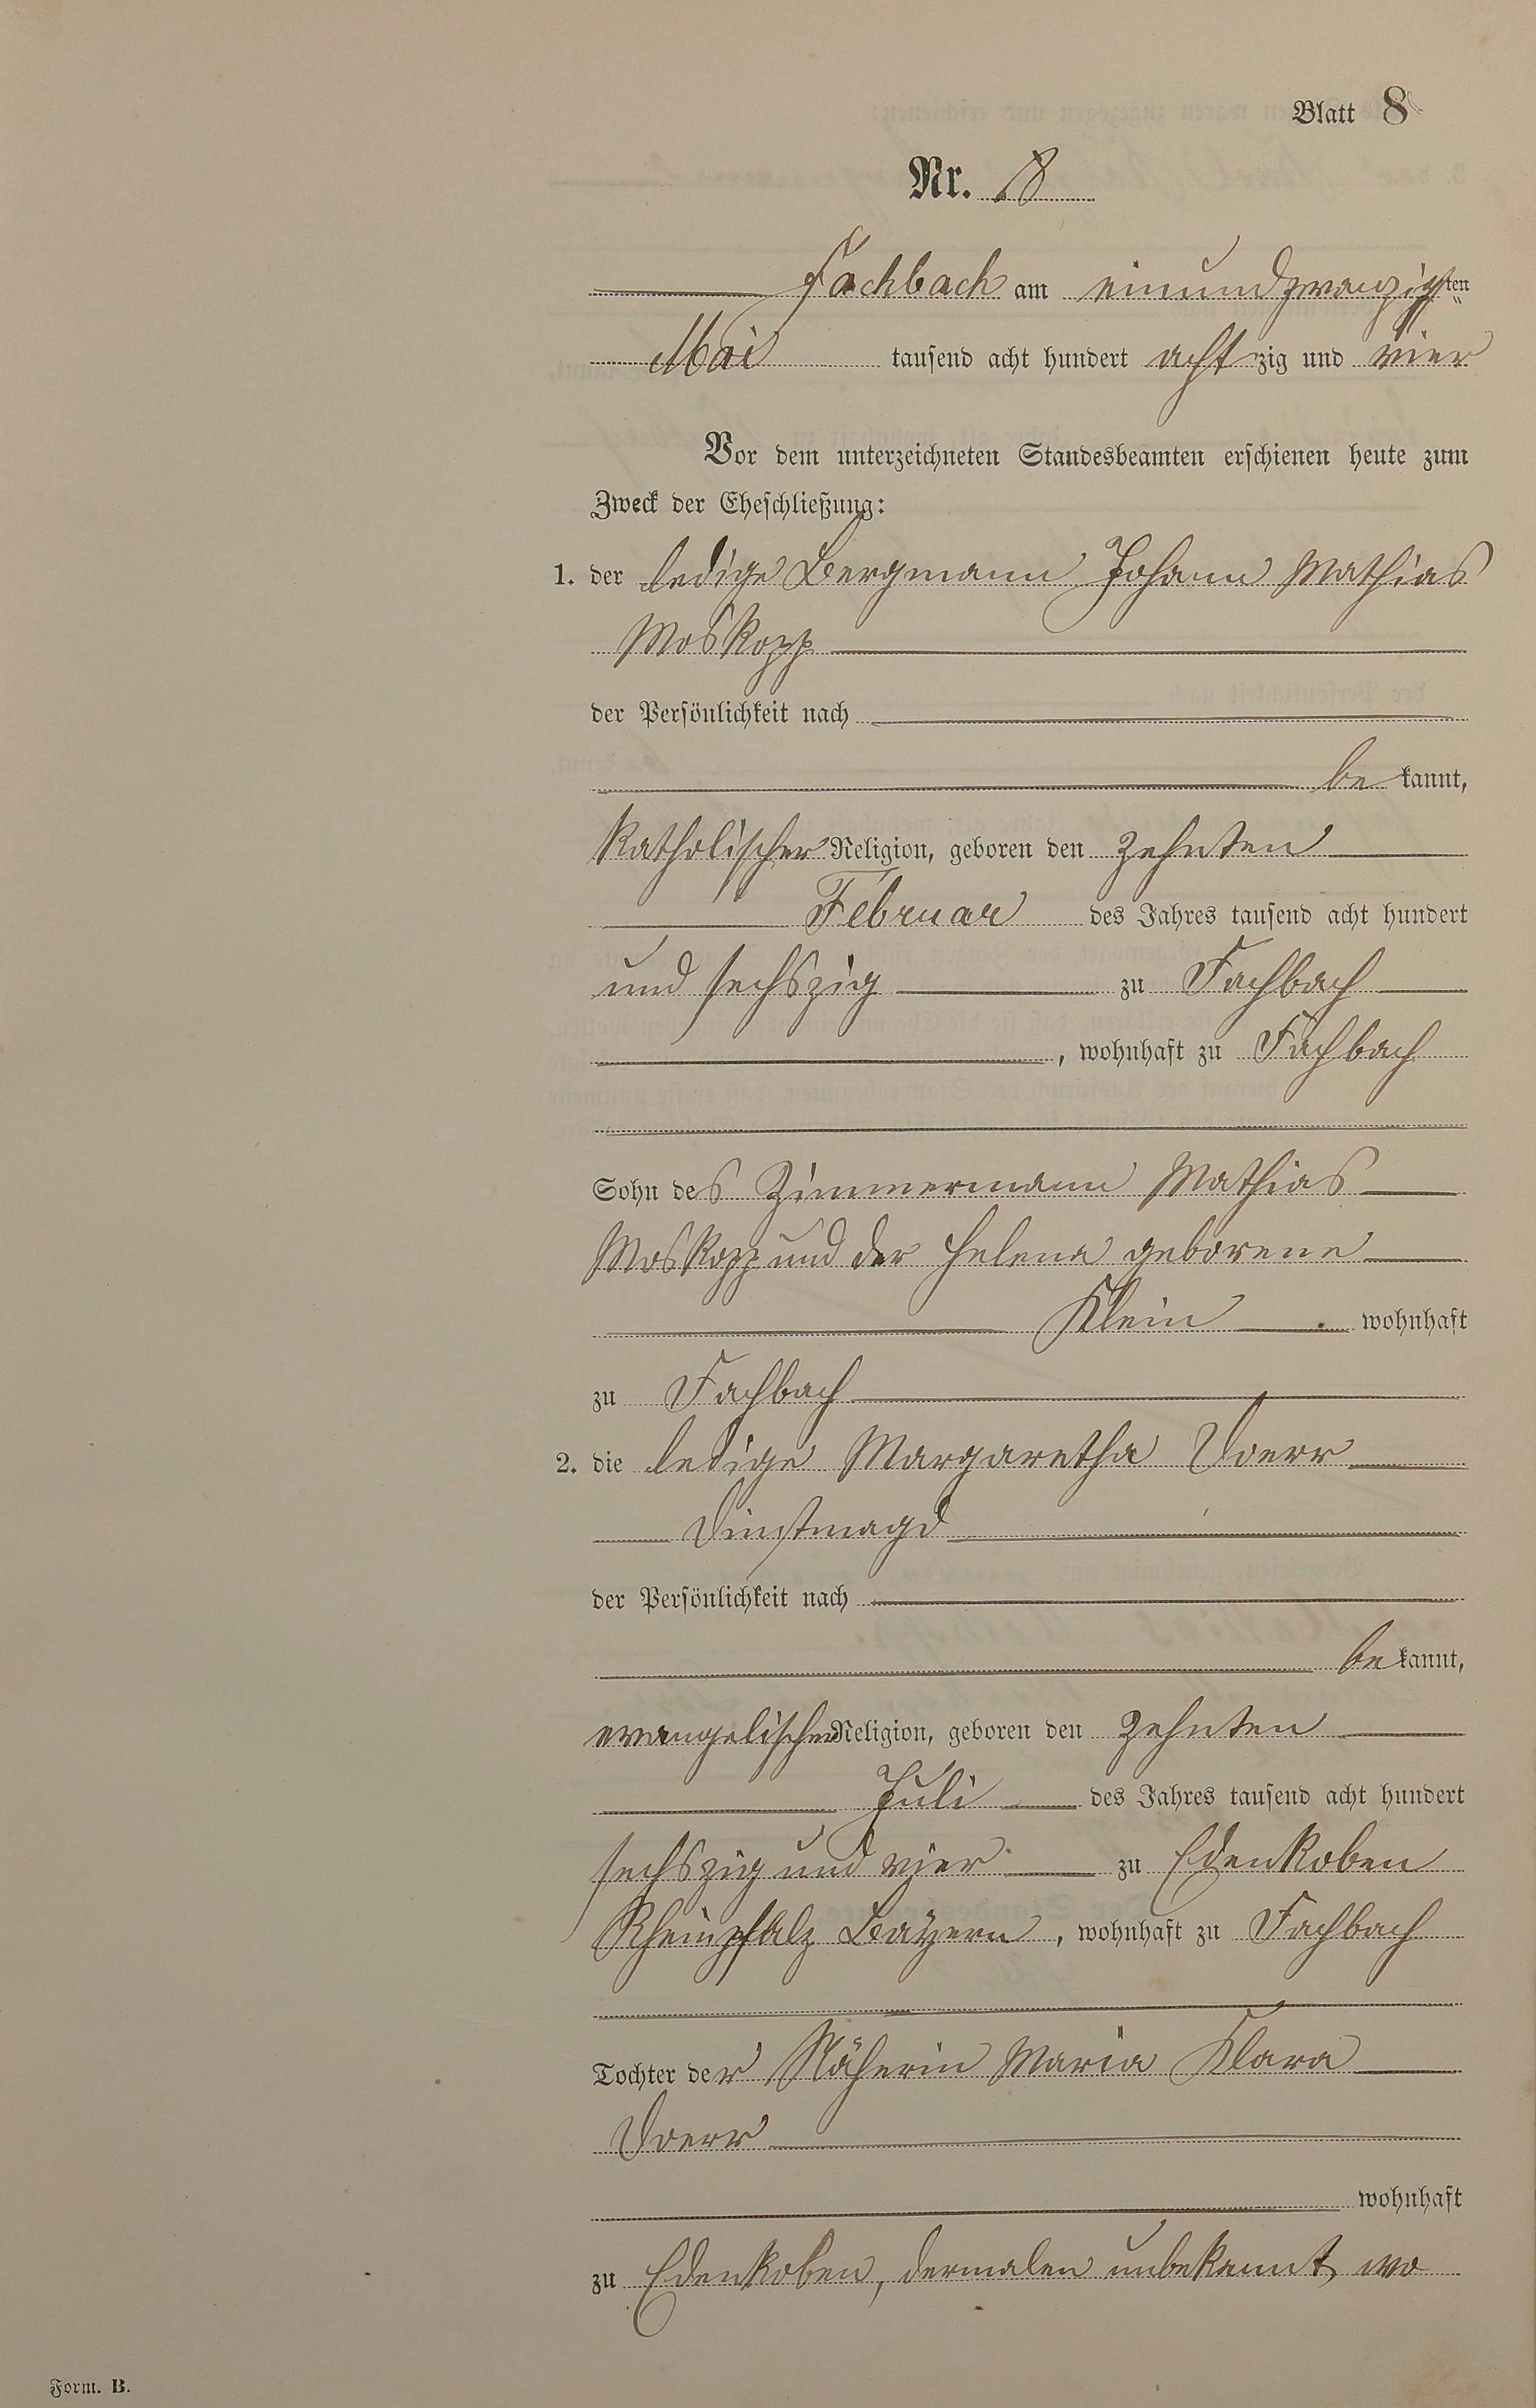 Blatt 8
Nr. 8
Fachbach am einundzwanzigsten
Mai tausend acht hundert achtzig und vier
Vor dem unterzeichneten Standesbeamten erschienen heute zum
Zweck der Eheschließung:
1. der ledige Bergmann Johann Mathias
Moskopp
der Persönlichkeit nach
bekannt,
katholischer Religion, geboren den zehnten
Februar des Jahres tausend acht hundert
und sechszig zu Fachbach
, wohnhaft zu Fachbach
Sohn des Zimmermann Mathias
Moskopp und der Helena geborene
Klein wohnhaft
zu Fachbach
2. die ledige Margaretha Doerr
Dinstmagd
der Persönlichkeit nach
bekannt,
evangelischer Religion, geboren den zehnten
Juli des Jahres tausend acht hundert
sechszig und vier zu Edenkoben
Rheinpfalz Bayern, wohnhaft zu Fachbach
Tochter der Näherin Maria Klara
Doerr
wohnhaft
zu Edenkoben, dermalen unbekannt wo
Form. B.